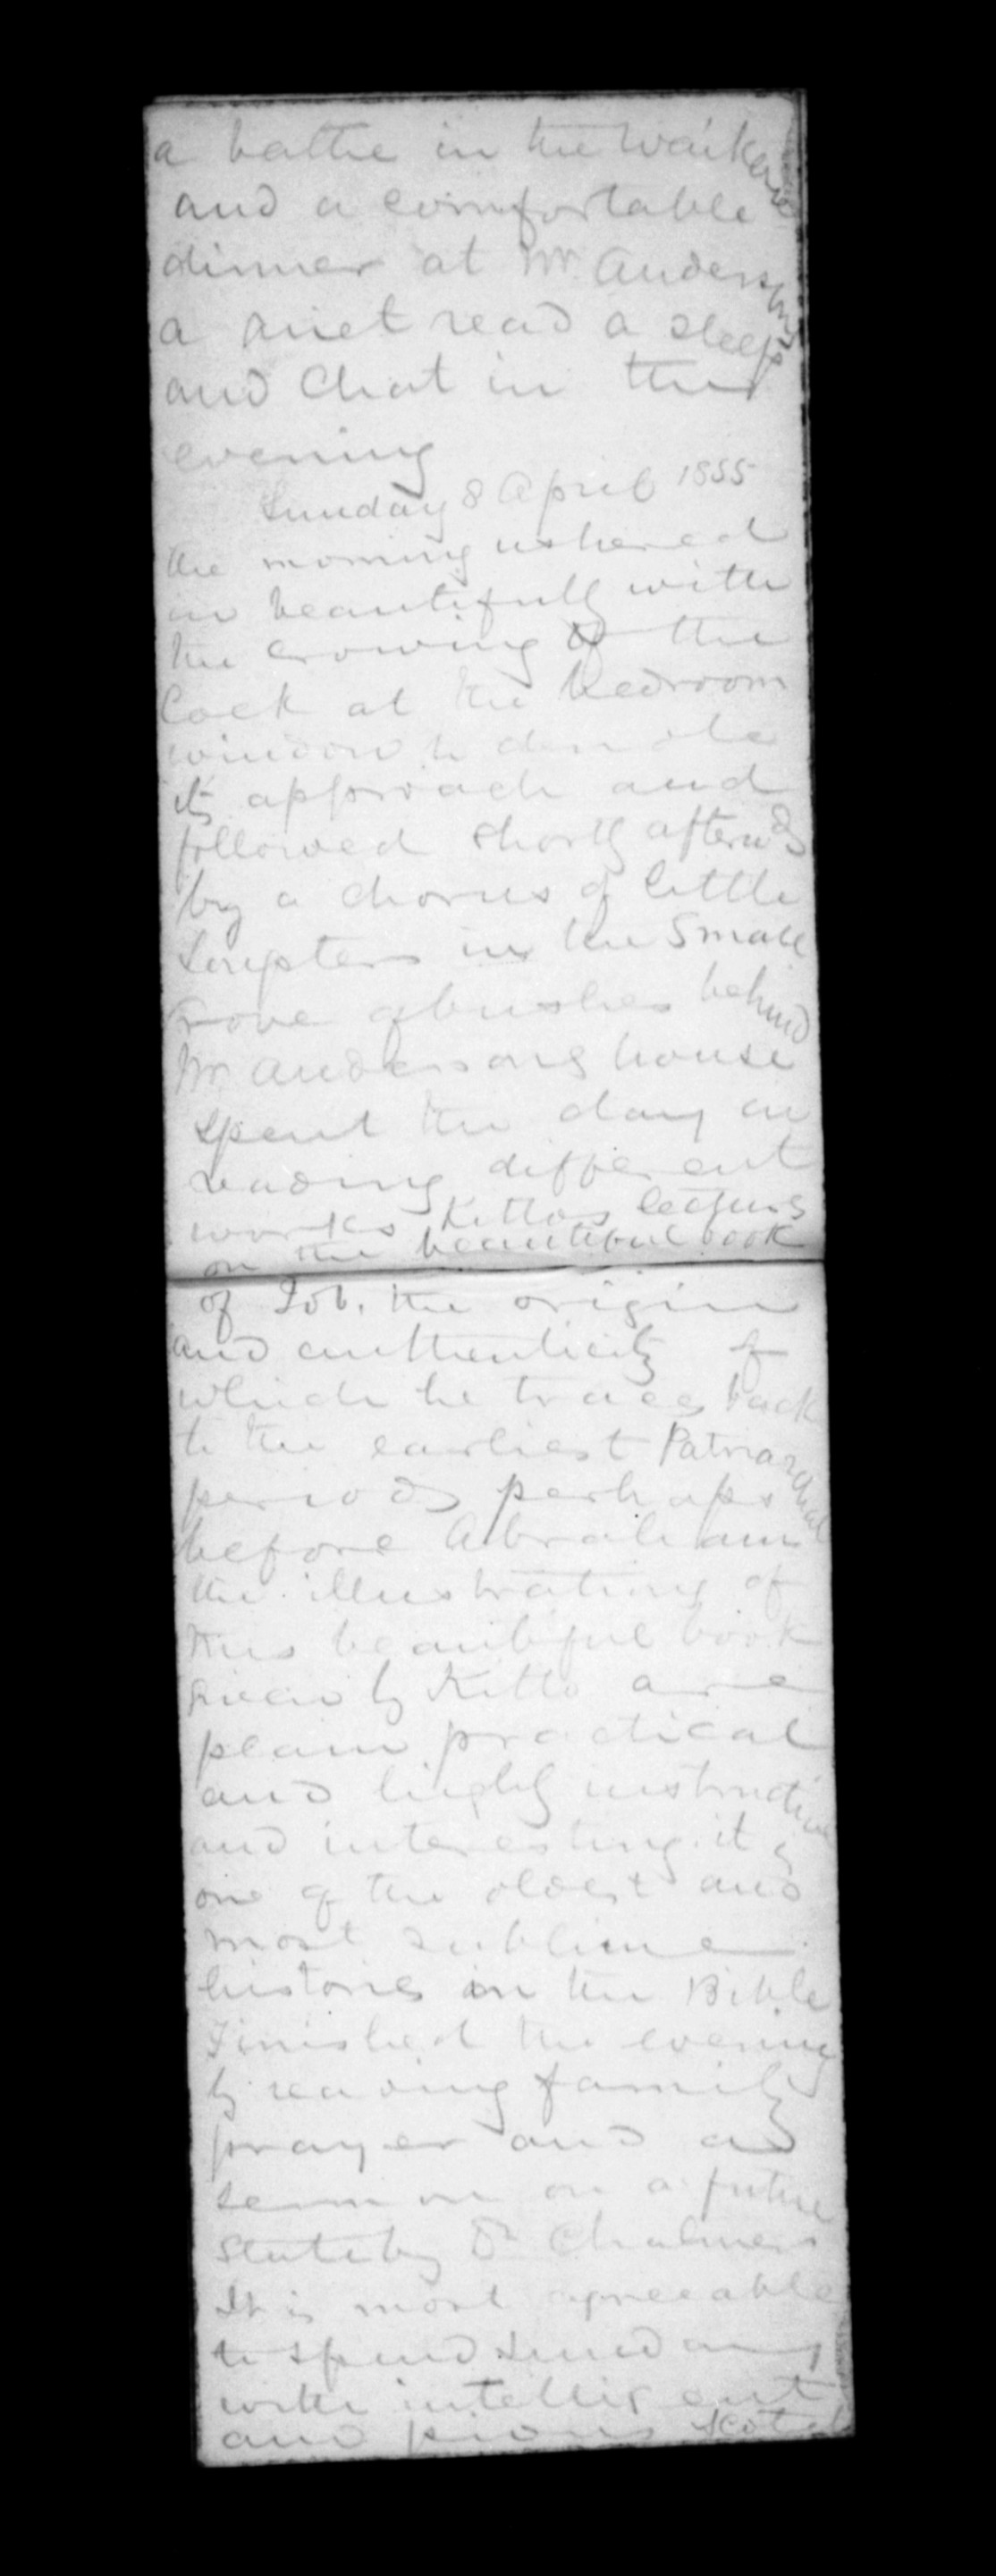 a bathe in the Waikanae
and a comfortable
dinner at Mr. Andersons
a quiet read a sleep
and Chat in the
evening
Sunday 8 April 1855
the morning ushered
in beautifully with
the crowing of the
Cock at the bedroom
window to denote
its approach and
followed shortly afterwds
by a chorus of little
Songsters in the Small
Grove of bushes behind
Mr Andersons house
spent the day in
reading different
works Kittos lectures
on the beautiful book
of Job. the origin
and authenticity of
which he traces back
to the earliest Patriarchal
periods perhaps
before Abraham
the illustrations of
this beautiful book
given by Kitto are
plain practical
and highly instructive
and interesting. it is
one of the oldest and
most sublime
histories in the Bible
Finished the evening
by reading family
prayer and a
sermon on a future
state by Dr Chalmers
It is most agreeable
to spend Sunday
with intelligent
and pious Scotch